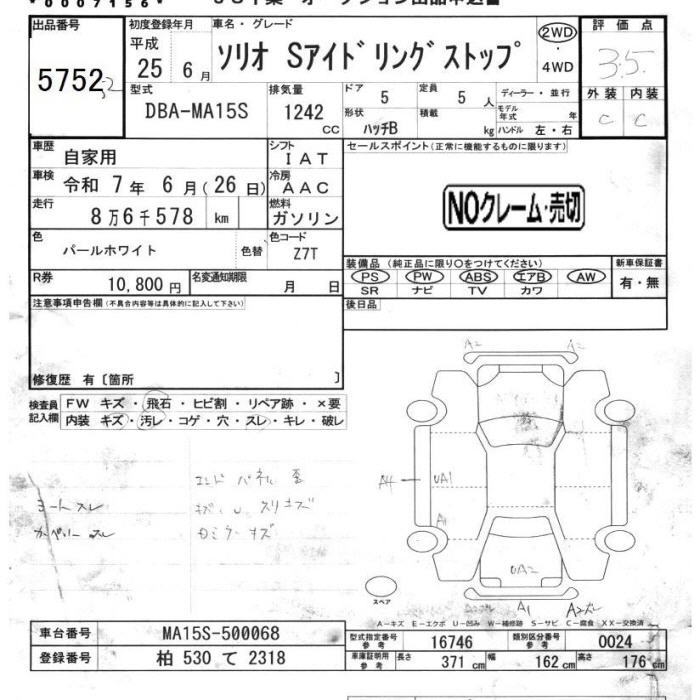 *0007156*
出品番号 初度登録年月 車名・グレード 2WD 評価点
5752 平成 25 6 月 ソリオ Sアイドリングストップ ・ 4WD 3.5
型式 排気量 ドア 5 定員 5 人 ディーラー・並行 外装 内装
DBA-MA15S 1242 cc 形状 ハッチB 積載 kg モデル年式 年 ハンドル 左・右 C C
車歴 自家用 シフト IAT セールスポイント(正常に機能するものに限ります)
車検 令和 7 年 6 月(26 日) 冷房 AAC
走行 8 万 6 千 578 km 燃料 ガソリン
NOクレーム・売切
色 パールホワイト 色替 色コード Z7T
装備品(純正品に限り○をつけてください) 新車保証書
R券 10,800 円 名変通知期限 月 日 PS PW ABS エアB AW 有・無
SR ナビ TV カワ
注意事項申告欄(不具合内容等は具体的に記入して下さい) 後日品
修復歴 有〔箇所 〕
検査員記入欄 FW キズ・飛石・ヒビ割・リペア跡・×要
内装 キズ・汚レ・コゲ・穴・スレ・キレ・破レ
A2 A2
エンド パネル
シート スレ
A4 UA1
A1
UA2
A1 A2
スペア
A-キズ E-エクボ U-凹み W-補修跡 S-サビ C-腐食 XX-交換済
車台番号 MA15S-500068 型式指定番号 参考 16746 類別区分番号 参考 0024
登録番号 柏 530 て 2318 車庫証明用 参考 長さ 371 cm 幅 162 cm 高さ 176 cm